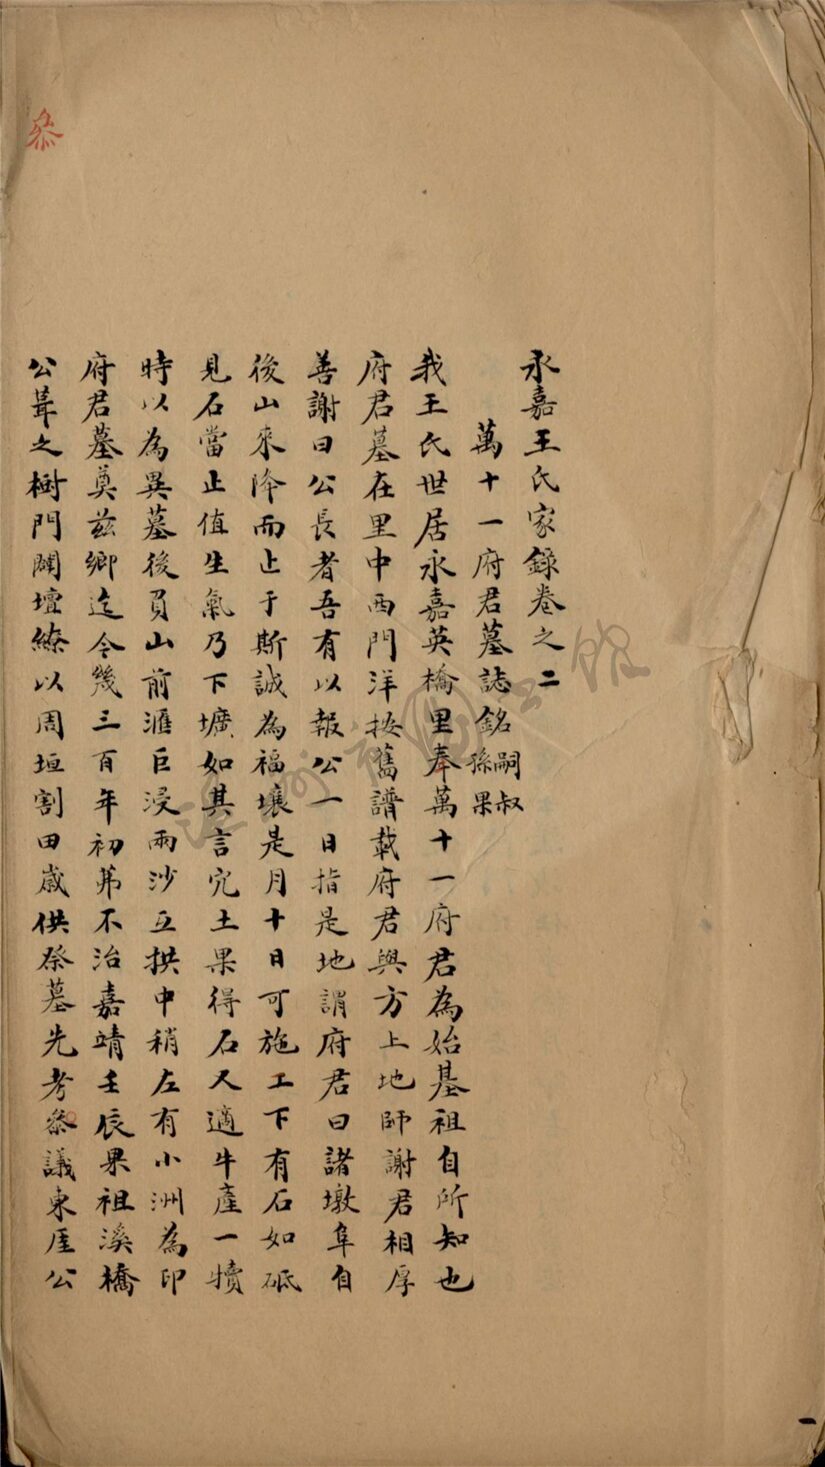 永嘉王氏家錄卷之二
萬十一府君墓誌銘 嗣孫叔果
我王氏世居永嘉英橋里奉萬十一府君為始基祖自所知也
府君墓在里中西門洋按舊譜載府君與方上地師謝君相厚
善謝曰公長者吾有以報公一日指是地謂府君曰諸墩阜自
後山來降而止于斯誠為福壤是月十日可施工下有石如砥
見石當止值生氣乃下壙如其言究土果得石又適牛產一犢
時以為異墓後負山前滙巨浸兩沙互拱中稍左有小洲為印
府君墓奠茲鄉迄今幾三百年初苐不治嘉靖壬辰果祖溪橋
公葺之樹門闢壇繚以周垣割田歲供祭墓先考叅議東厓公
叅